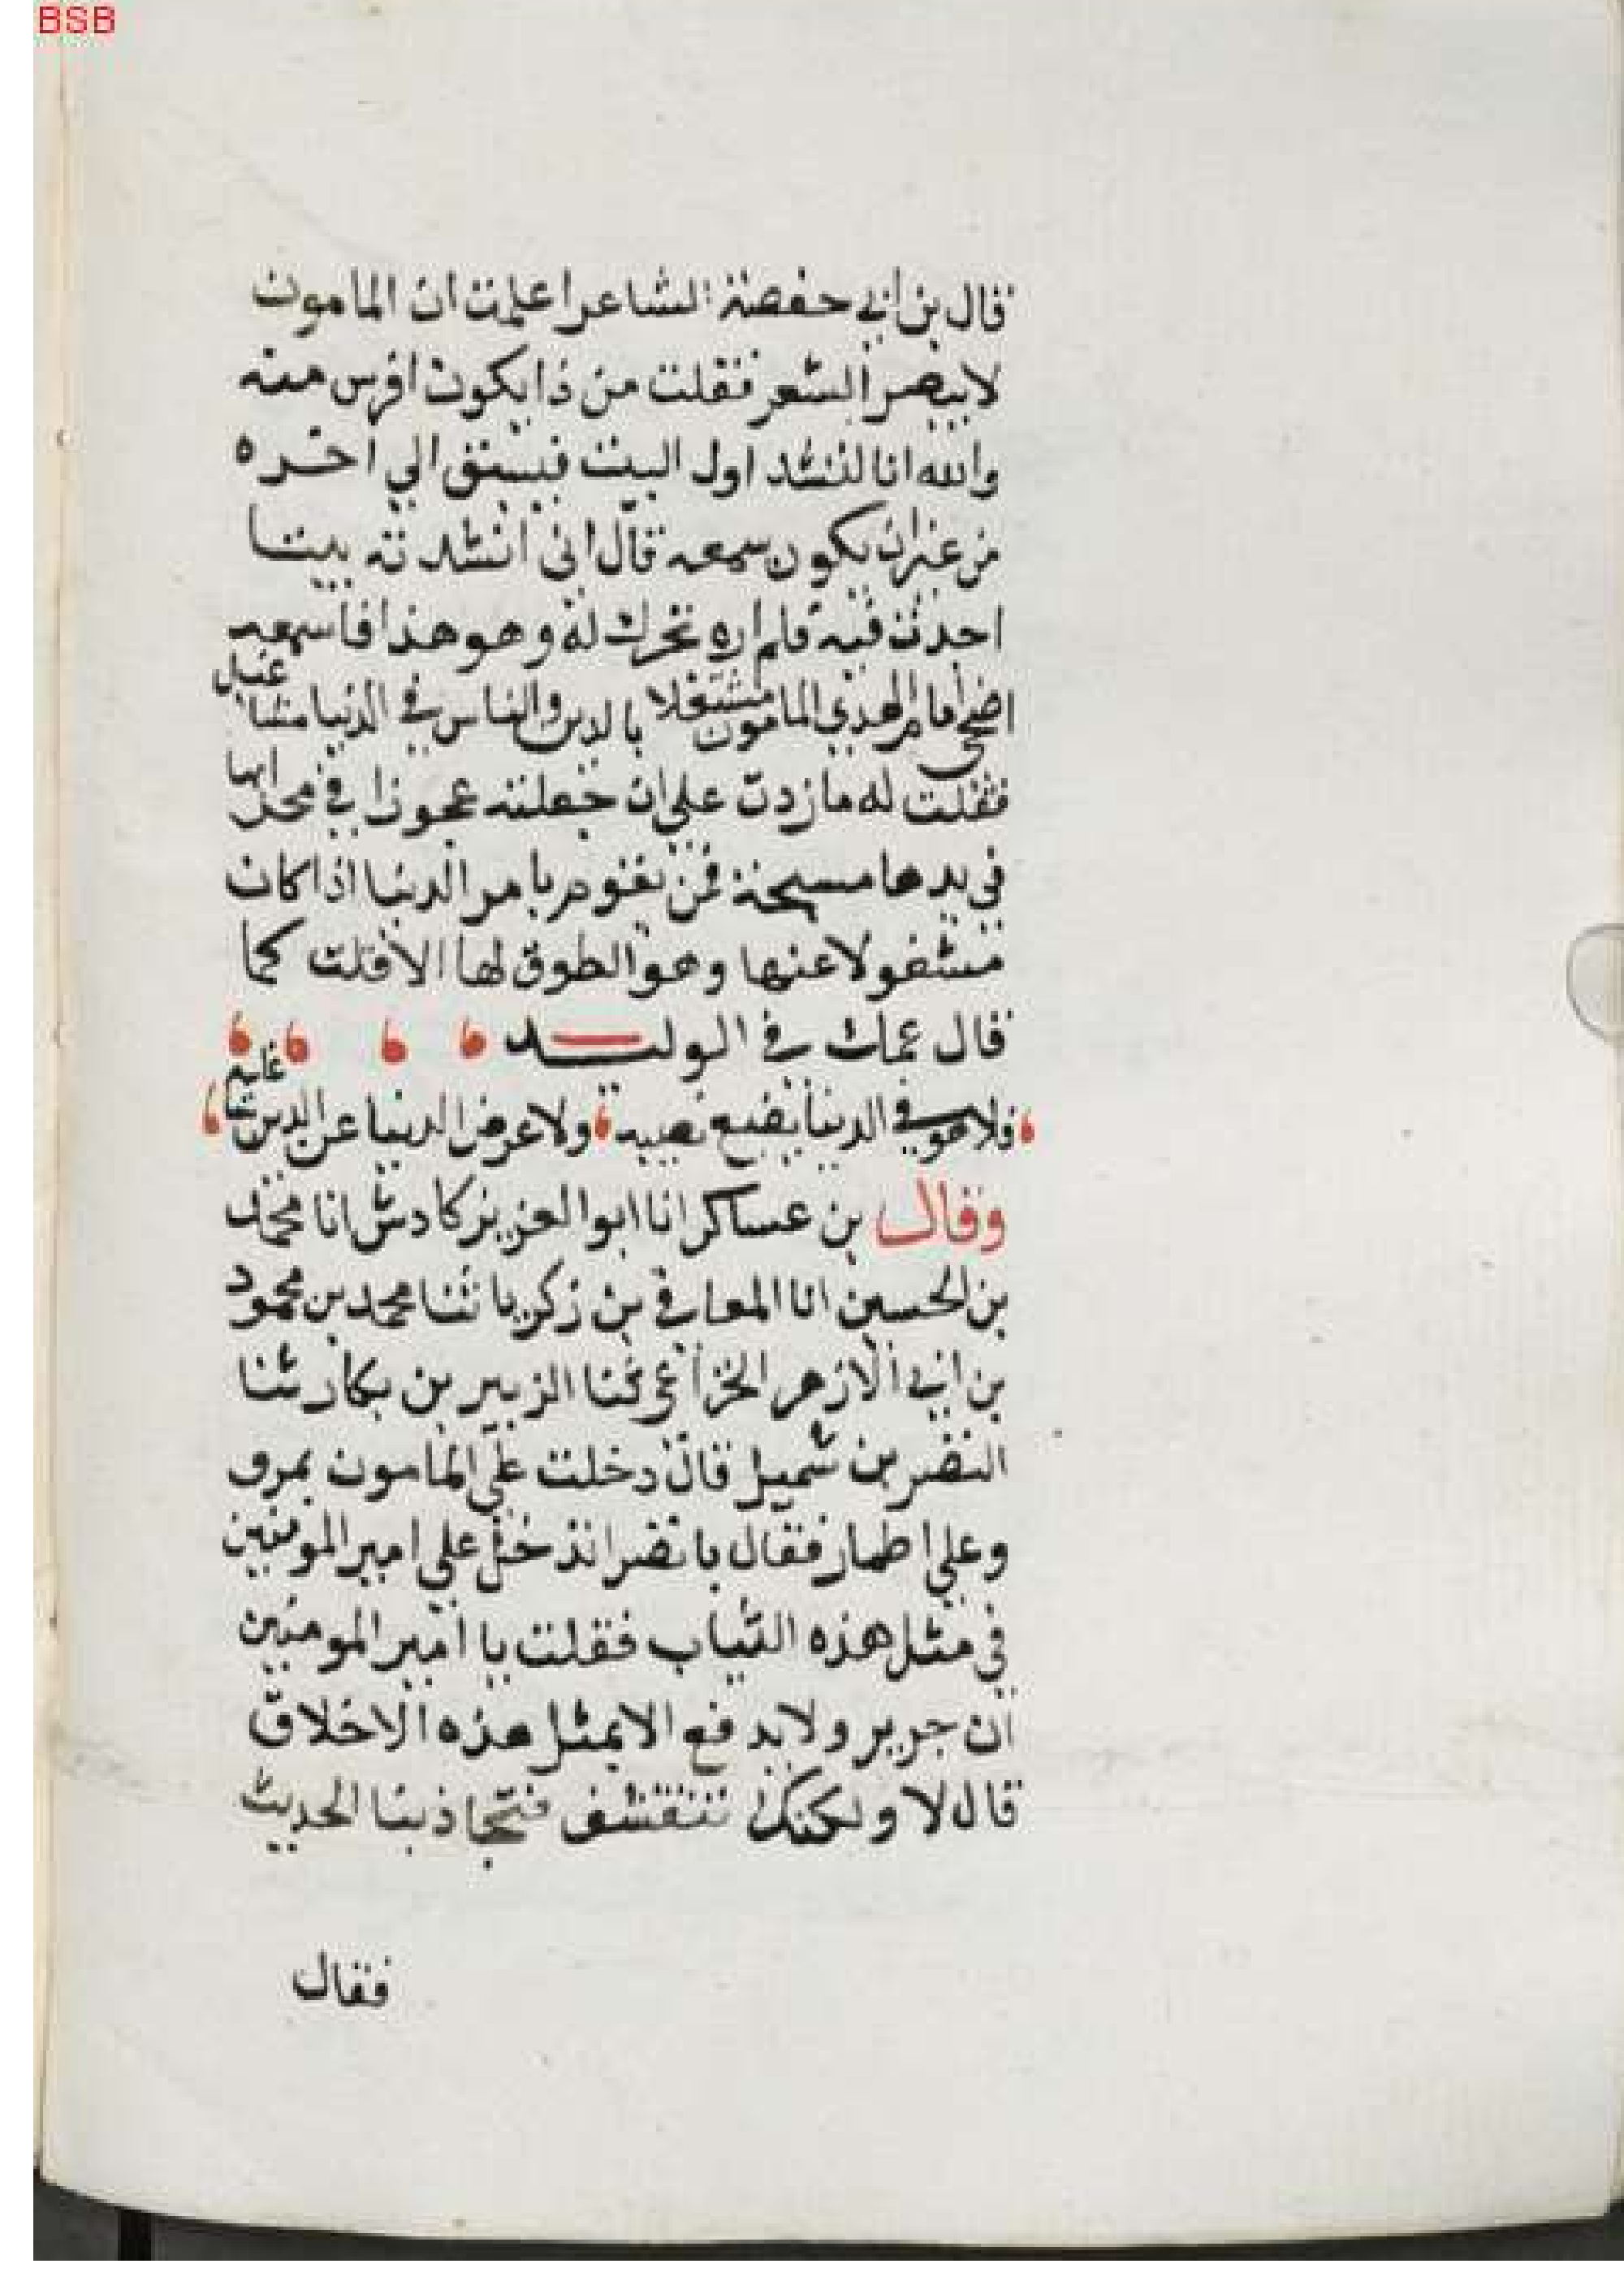 BSB
قال بن ابي حفصة الشاعر اعلمت ان المامون
لا يبصر الشعر فقلت من ذا يكون افرس منه
والله انا لننشد اول البيت فيستق الي اخره
من غير ان يكون سمعه قال اني انشدته بيتا
اجدت فيه فلم اره تحرك له وهو هذا فاسمعه
اضحى امام الهدي المامون مشتغلا بالدين والناس في الدنيا مشاغيل
فقلت له ما زدت علي ان جعلته عجوزا في محرابها
في يدها مسبحة فمن يقوم بامر الدنيا اذا كان
مشغولا عنها وهو الطوق لها الا قلت كما
قال عمك في الوليد
فلا هو في الدنيا يضيع نصيبه ولا عرض الدنيا عن الدين شاغله
وقال بن عساكر انا ابو العزيز كادش انا محمد
بن الحسين انا المعافي بن زكريا ثنا محمد بن محمود
بن ابي الازهر الخزاعي ثنا الزبير بن بكار ثنا
النضر بن شميل قال دخلت علي المامون بمرو
وعلي اطمار فقال يا نضر اتدخل علي امير المومنين
في مثل هذه الثياب فقلت يا امير المومنين
ان جرير ولا يدفع الا بمثل هذه الاخلاق
قال لا ولكنك تتقشف فتجاذبنا الحديث
فقال